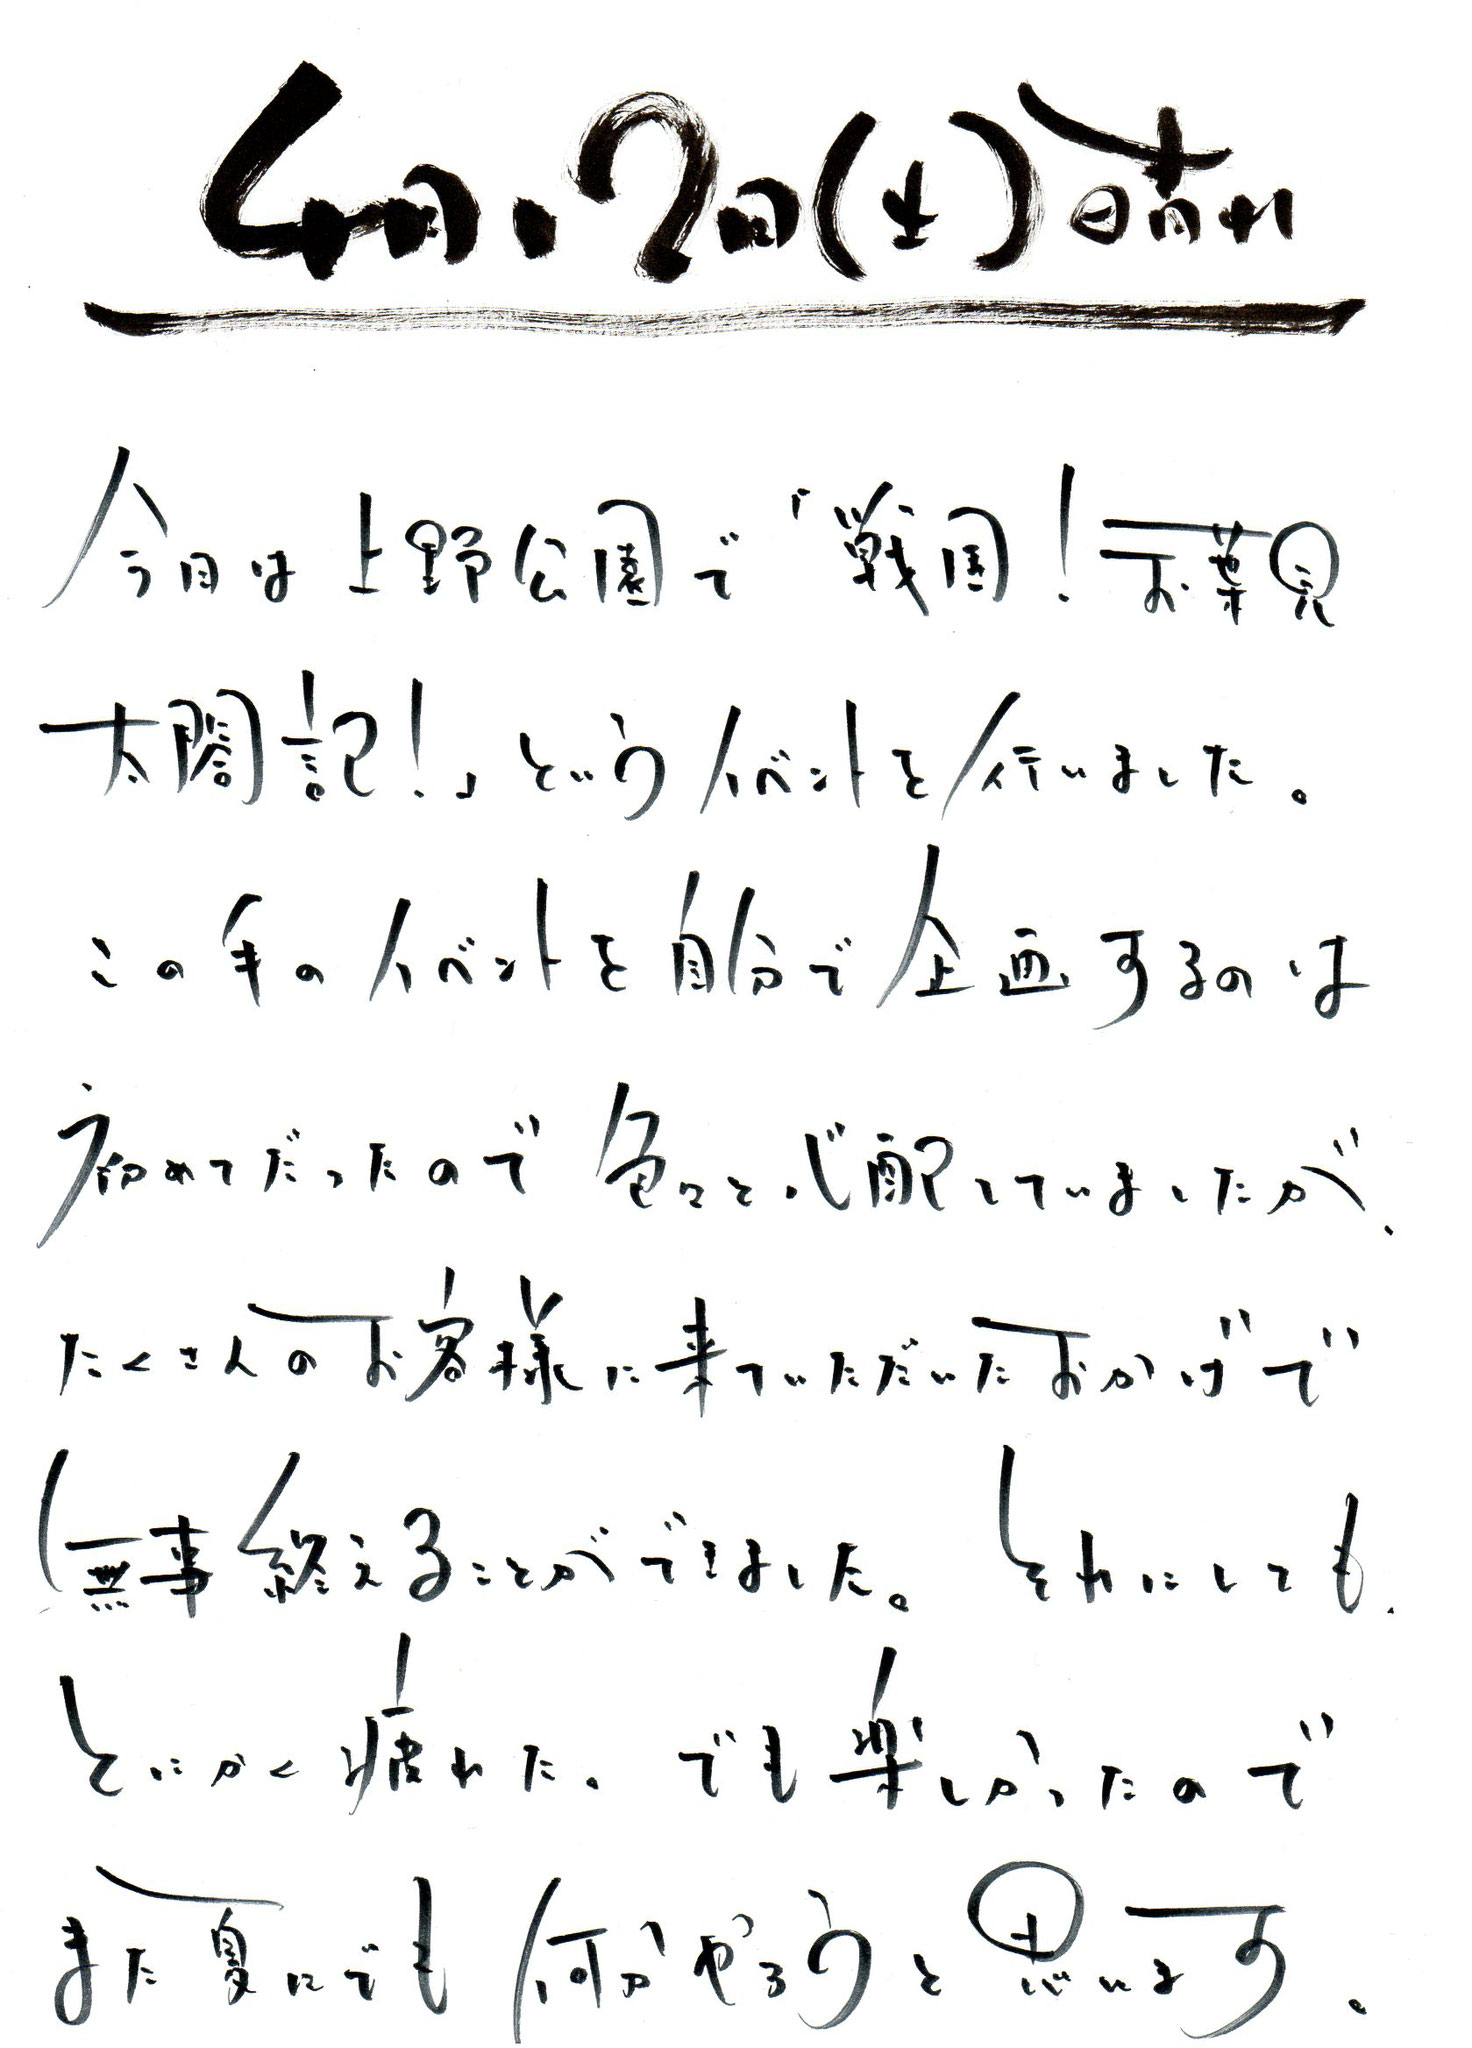 4月2日(土)晴れ
今日は上野公園で「戦国!お葉見
太閤記!」というイベントを行いました。
この手のイベントを自分で企画するのは
初めてだったので色々と心配していましたが、
たくさんのお客様に来ていただいたおかげで
無事終えることができました。それにしても、
とにかく疲れた。でも楽しかったので
また夏にでも何かやろうと思います。